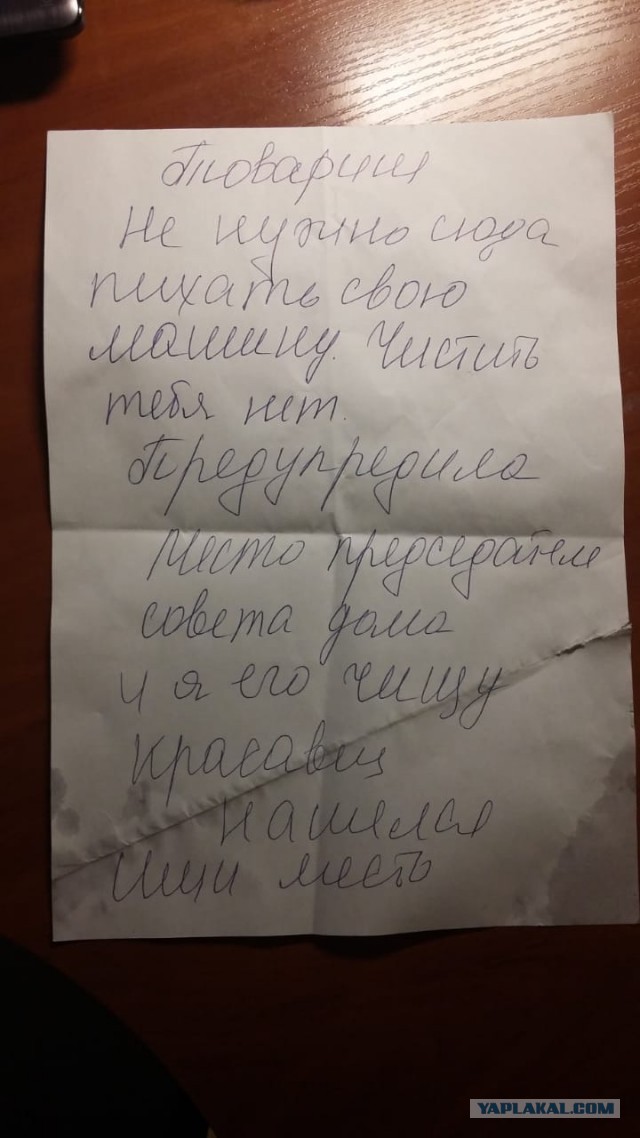 Товарищ
Не нужно сюда
пихать свою
машину. Чистить
тебя нет.
Предупредила
Место председателя
совета дома
и я его чищу
Красавец
нашелся
Ищи место
YAPLAKAL.COM